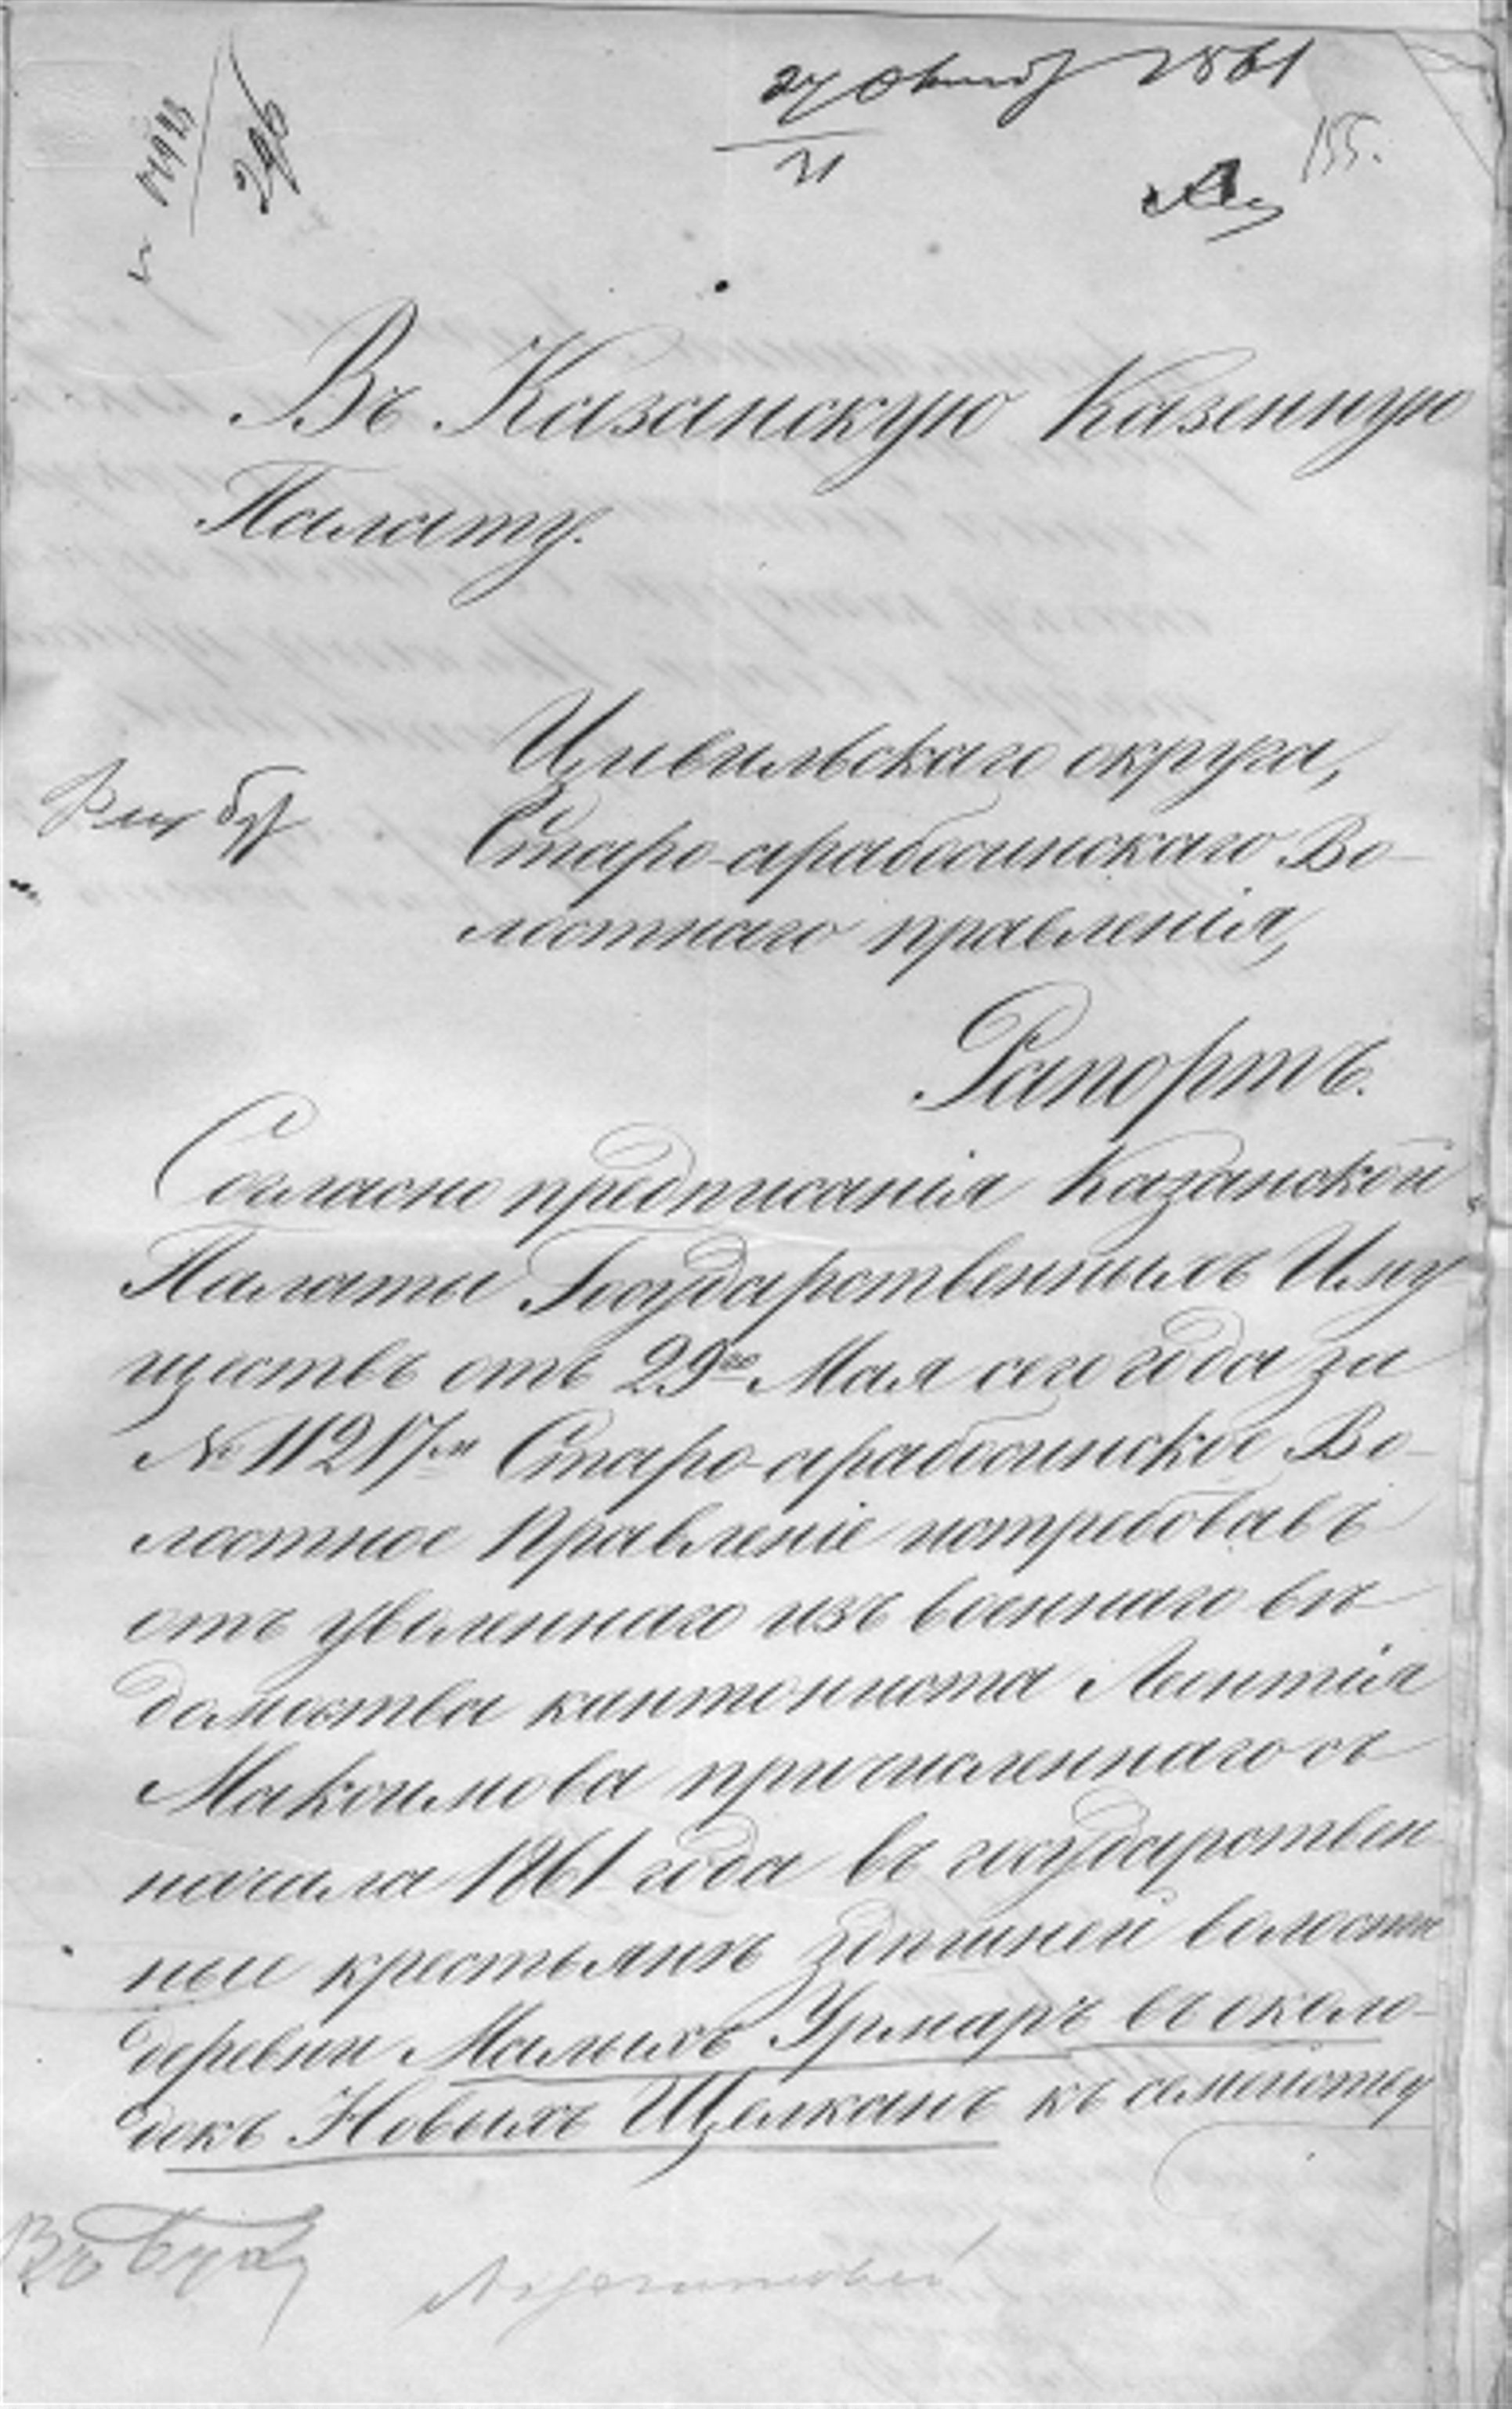 27 Октяб 1861
21
155.
296
Въ Казанскую Казенную
Палату.
Цивильскаго округа,
Старо-арабосинскаго Во-
лостнаго правленія,
Рапортъ.
Согласно предписанія Казанской
Палаты Государственныхъ Иму
ществъ отъ 29го Мая сего года за
№ 11217м Старо-арабосинское Во-
лостное Правленіе потребовавъ
отъ уволеннаго изъ военнаго вѣ
домства кантониста Леонтія
Максимова причисленнаго съ
начала 1861 года въ государствен
ные крестьянъ здѣшней волости
деревни Малыхъ Урмаръ въ около-
докъ Новыхъ Щелканъ къ семейству